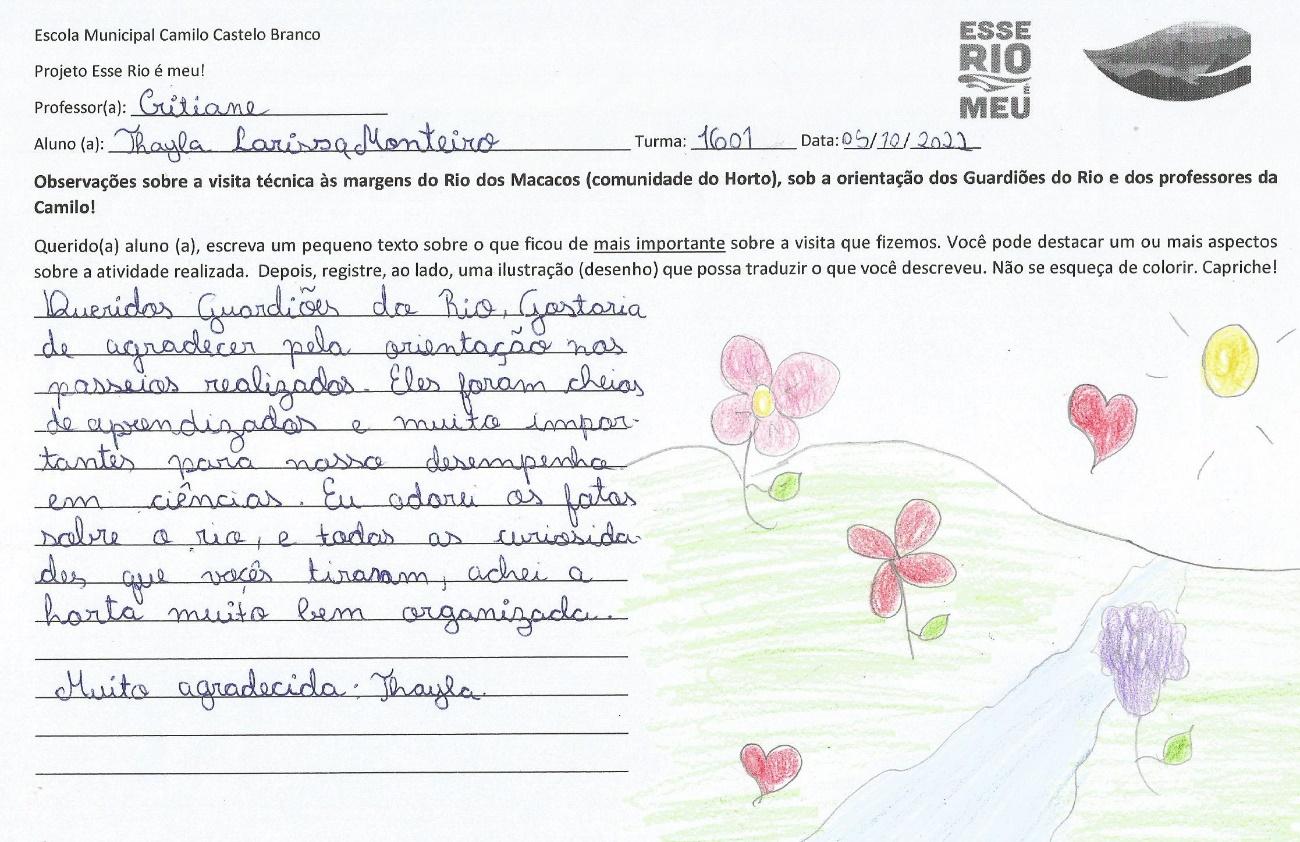 Escola Municipal Camilo Castelo Branco
Projeto Esse Rio é meu!
Professor(a): Critiane
Aluno (a): Thayla Larissa Monteiro Turma: 1601 Data: 05/10/2022
ESSE
RIO
É
MEU
Observações sobre a visita técnica às margens do Rio dos Macacos (comunidade do Horto), sob a orientação dos Guardiões do Rio e dos professores da
Camilo!
Querido(a) aluno (a), escreva um pequeno texto sobre o que ficou de mais importante sobre a visita que fizemos. Você pode destacar um ou mais aspectos
sobre a atividade realizada. Depois, registre, ao lado, uma ilustração (desenho) que possa traduzir o que você descreveu. Não se esqueça de colorir. Capriche!
Queridos Guardiões do Rio, Gostaria
de agradecer pela orientação nos
passeios realizados. Eles foram cheios
de aprendizados e muito impor-
tantes para nosso desempenho
em ciências. Eu adorei os fatos
sobre o rio, e todas as curiosida-
des que vocês tiraram, achei a
horta muito bem organizada.
Muito agradecida: Thayla.